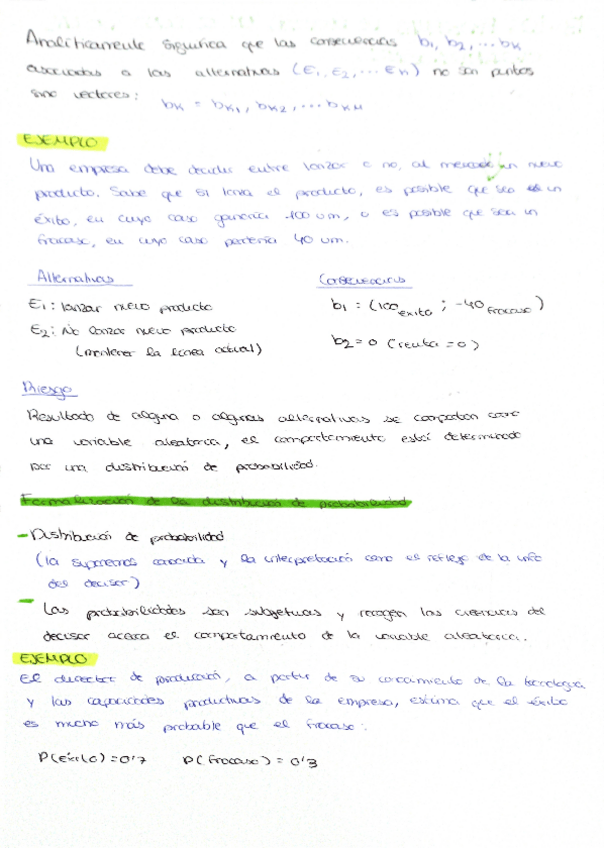 Analíticamente significa que las consecuencias b1, b2, ... bk
asociadas a las alternativas (E1, E2, ... En) no son puntos
sino vectores:
bk = bk1, bk2, ... bkM
EJEMPLO
Una empresa debe decidir entre lanzar o no, al mercado un nuevo
producto. Sabe que si lanza el producto, es posible que sea un
éxito, en cuyo caso ganaría 100 um, o es posible que sea un
fracaso, en cuyo caso perdería 40 um.
Alternativas
Consecuencias
E1: lanzar nuevo producto
b1 = (100 éxito ; -40 fracaso)
E2: No lanzar nuevo producto
(mantener la línea actual)
b2 = 0 (renta = 0)
Riesgo
Resultado de alguna o algunas alternativas se comportan como
una variable aleatoria, el comportamiento está determinado
por una distribución de probabilidad.
Formalización de la distribución de probabilidad
- Distribución de probabilidad
(la suponemos conocida y la interpretación como el reflejo de la
del decisor)
- Las probabilidades son subjetivas y recogen las creencias del
decisor acerca el comportamiento de la variable aleatoria.
EJEMPLO
El director de producción, a partir de su conocimiento de la tecnología
y las capacidades productivas de la empresa, estima que el éxito
es mucho más probable que el fracaso:
P(éxito) = 0'7 P(fracaso) = 0'3